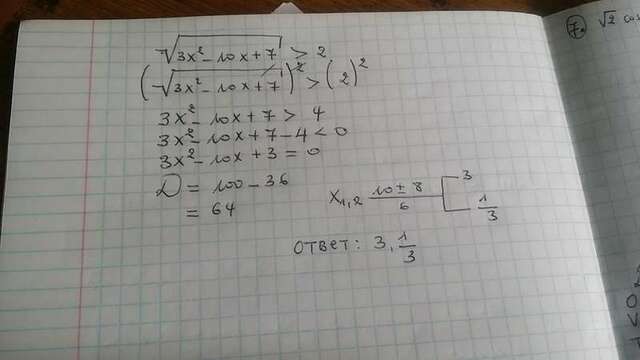 7. √2 cos
√3x² - 10x + 7 > 2
(√3x² - 10x + 7)² > (2)²
3x² - 10x + 7 > 4
3x² - 10x + 7 - 4 < 0
3x² - 10x + 3 = 0
D = 100 - 36
= 64
x₁,₂ (10 ± 8)/6 3
1/3
ответ: 3, 1/3